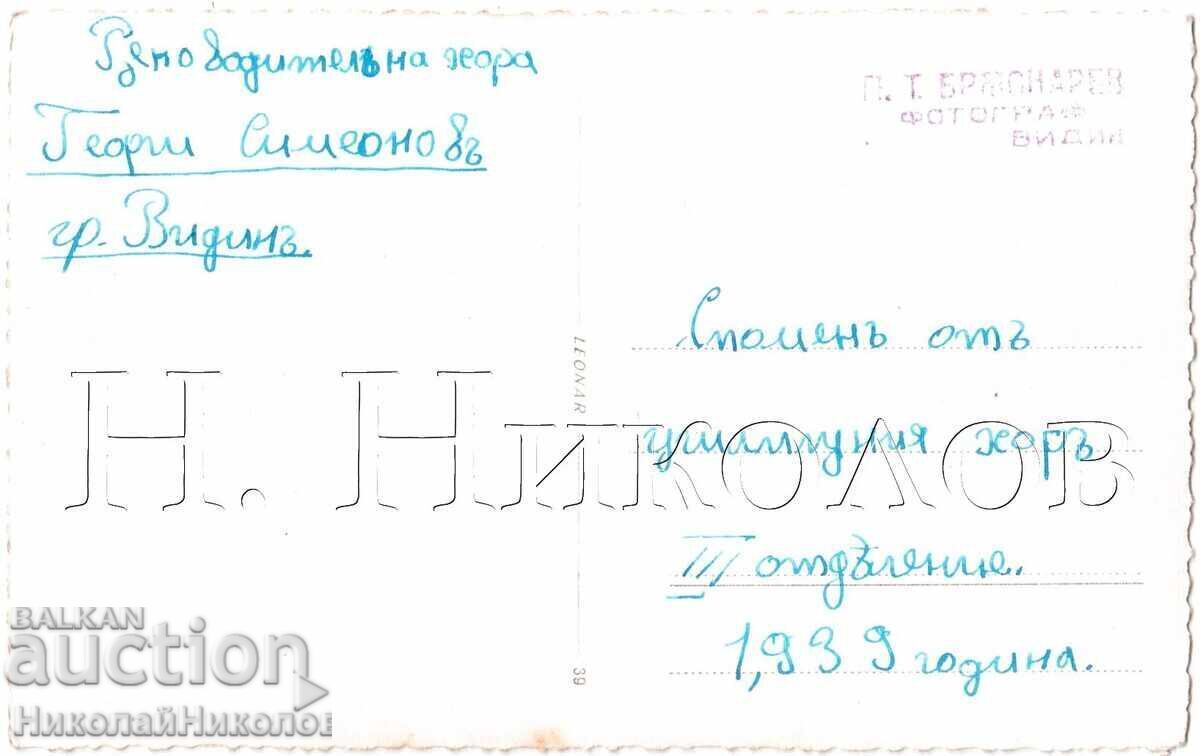 водитель на хора
Георги Симеоновъ
гр. Видинъ.
П. Т.
ФОТОГРАФ
ВИДИН
Споменъ отъ
хоръ
III отдѣление.
1,939 година.
LEONAR
39
Н. Николов
BALKAN
auction
НиколайНиколов